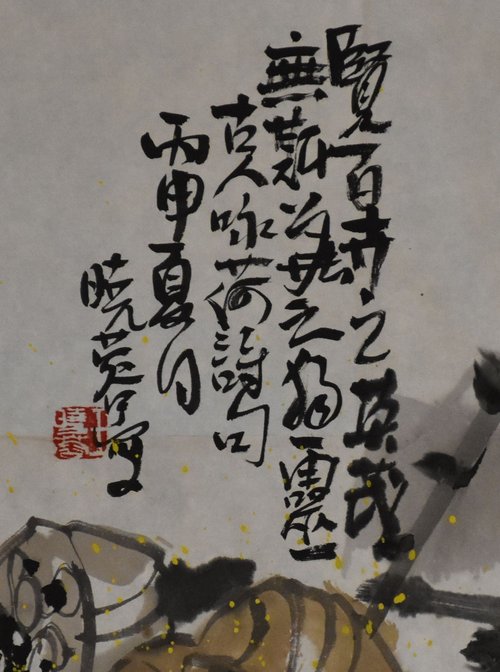 覽百卉之英茂
無斯華之獨靈
古人咏荷詩句
丙申夏月
晓